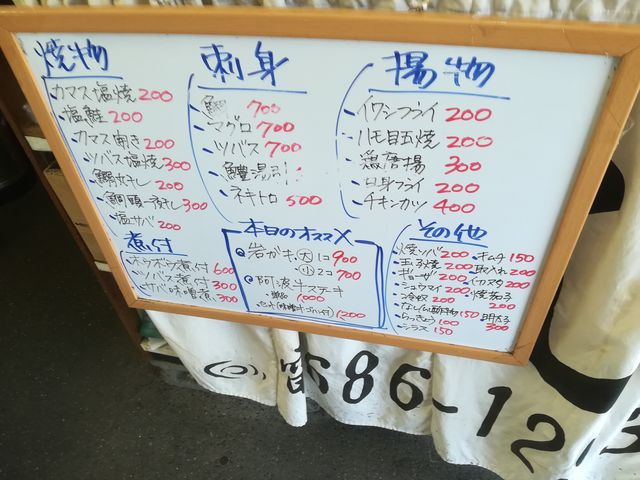 焼物
カマス塩焼 200
塩鮭 200
カマス開き 200
ツバス塩焼 300
200
300
塩サバ 200
煮付
ホウボウ煮付 600
ツバス煮付 300
サバ味噌煮 300
刺身
鯛 700
マグロ 700
ツバス 700
ネギトロ 500
本日のオススメ
岩ガキ 大1コ 900
小2コ 700
阿波牛ステキ
単品 1000
1200
揚物
イワシフライ 200
ハモ目玉焼 200
魚唐揚 300
白身フライ 200
チキンカツ 400
その他
焼ソバ 200
玉子焼 200
ギョーザ 200
シュウマイ 200
冷奴 200
150
らっきょう 100
シラス 150
キムチ 150
200
200
焼茄子 200
明太子 300
86-12